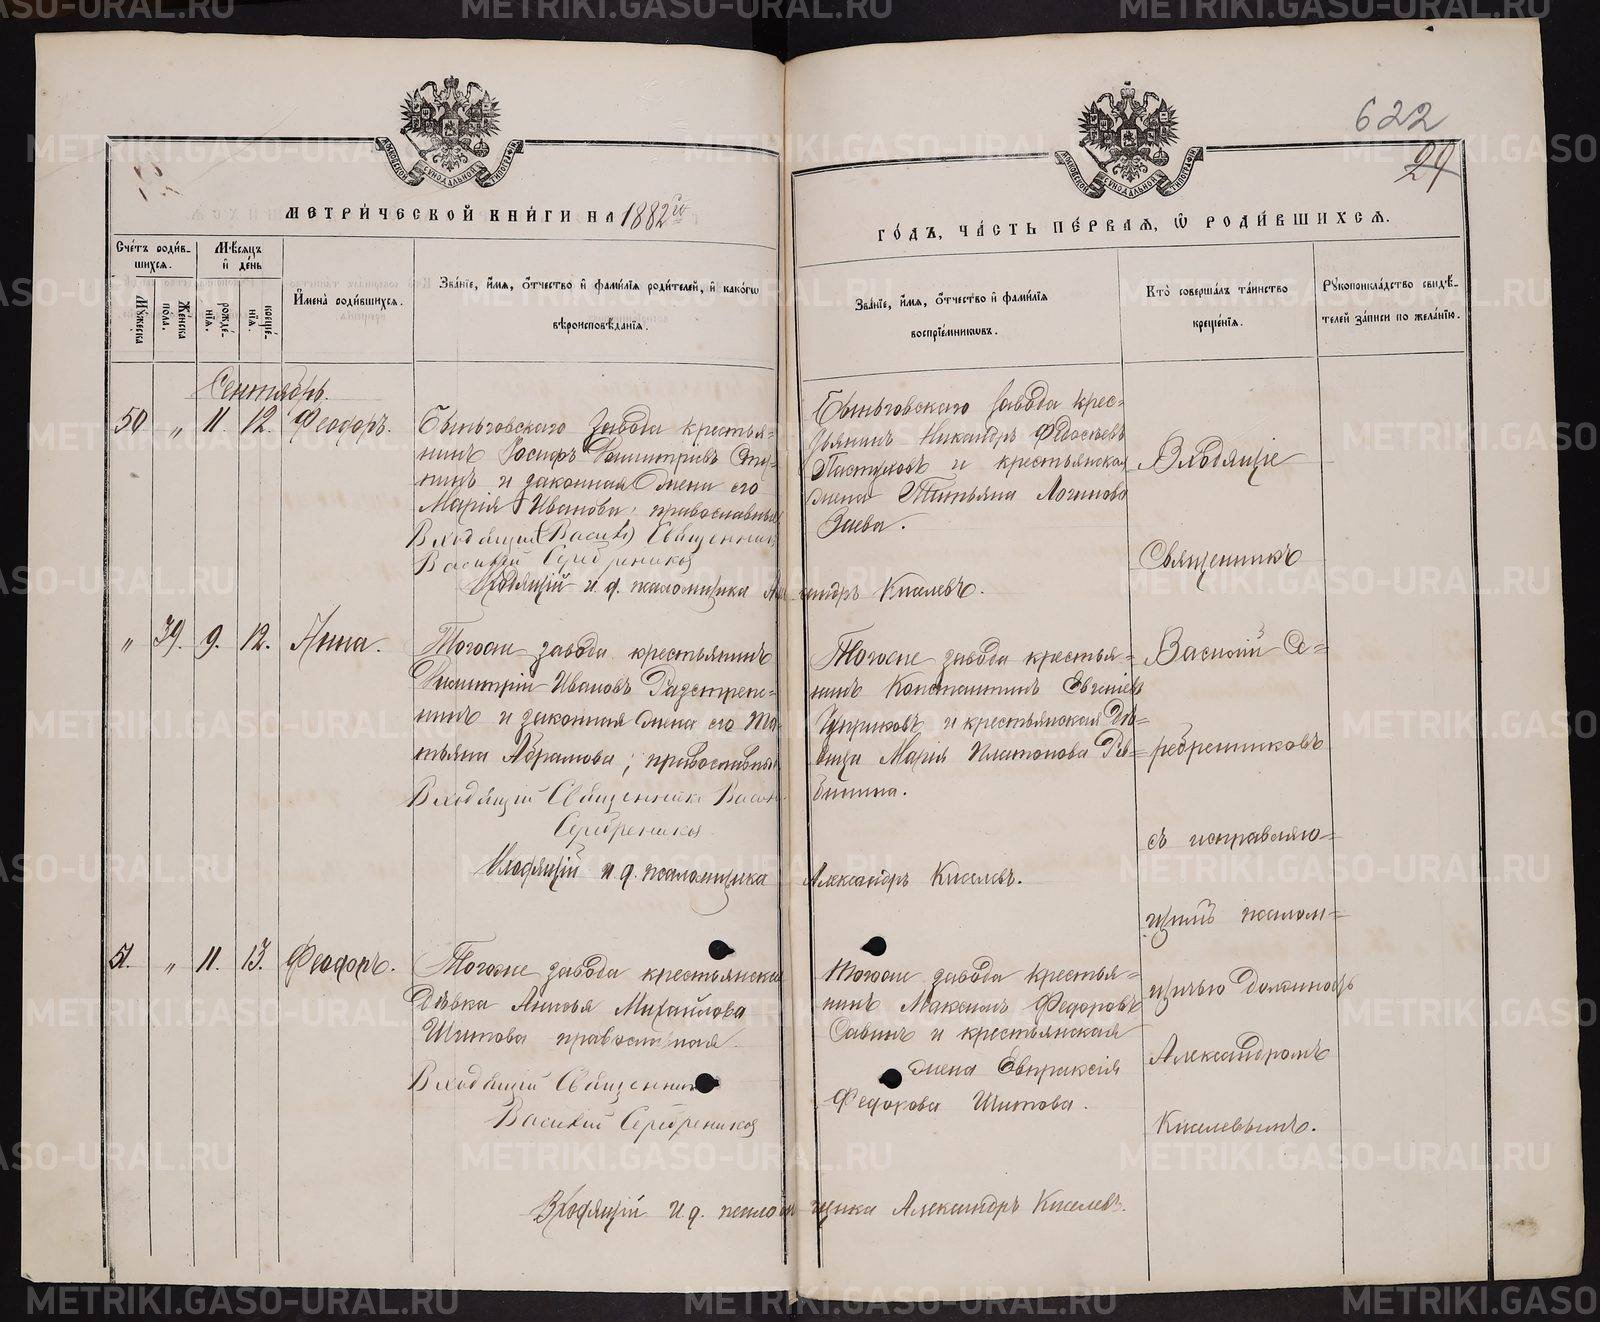 622
29
МЕТРИ́ЧЕСКОЙ КНИ́ГИ НА 1882 го
ГО́ДЪ, ЧА́СТЬ ПЕ́РВАЯ, Ѽ РОДИ́ВШИХСЯ.
Сче́тъ роди́в-
шихся.
Мꙋжеска
Же́нска
по́ла.
Мѣ́сяцъ
и де́нь
рожде́-
нїя.
креще́-
нїя.
И҆мена̀ роди́вшихся.
Зва́нїе, и҆́мя, ѻ҆́тчество и҆ фами́лїя роди́телей, и҆ како́гѡ
вѣроисповѣ́данїя.
Зва́нїе, и҆́мя, ѻ҆́тчество и҆ фами́лїя
воспрїе́мниковъ.
Кто̀ соверша́лъ та́инство
креще́нїя.
Рꙋкоприкла́дство свидѣ́-
телей за́писи по жела́нїю.
Сентябрь.
50 „ 11. 12. Феодоръ.
Быньговскаго завода крестья-
нинъ Іосифъ Димитріевъ
и законная жена его
Марія Иванова, православные
Входящій Священник
Василій Серебреников
Входящій и. д. псаломщика Александръ Киселевъ.
Быньговскаго завода крес-
тьянинъ Никандръ Федосѣевъ
Пастуховъ и крестьянская
жена Татьяна Логинова
Заева.
Входящіе
Священникъ
Василій Се-
ребренниковъ
съ исправляю-
щимъ псалом-
щичью должность
Александромъ
Киселевымъ.
„ 39. 9. 12. Анна.
Тогоже завода крестьянинъ
Димитрій Ивановъ Разстрепе-
нинъ и законная жена его Та-
тьяна Абрамова; православные
Входящій Священникъ Васил
Серебреников
Входящій и. д. псаломщика Александръ Киселевъ.
Тогоже завода крестья-
нинъ Константинъ Евгеніевъ
и крестьянская дѣ-
вица Марія Платонова Ря-
бинина.
51. „ 11. 13. Феодоръ.
Тогоже завода крестьянская
дѣвка Анисья Михайлова
Шитова православная.
Входящій Священник
Василій Серебреников
Входящій и. д. псаломщика Александръ Киселевъ.
Тогоже завода крестья-
нинъ Максимъ Федоровъ
Савинъ и крестьянская
жена Евпраксія
Федорова Шитова.
METRIKI.GASO-URAL.RU